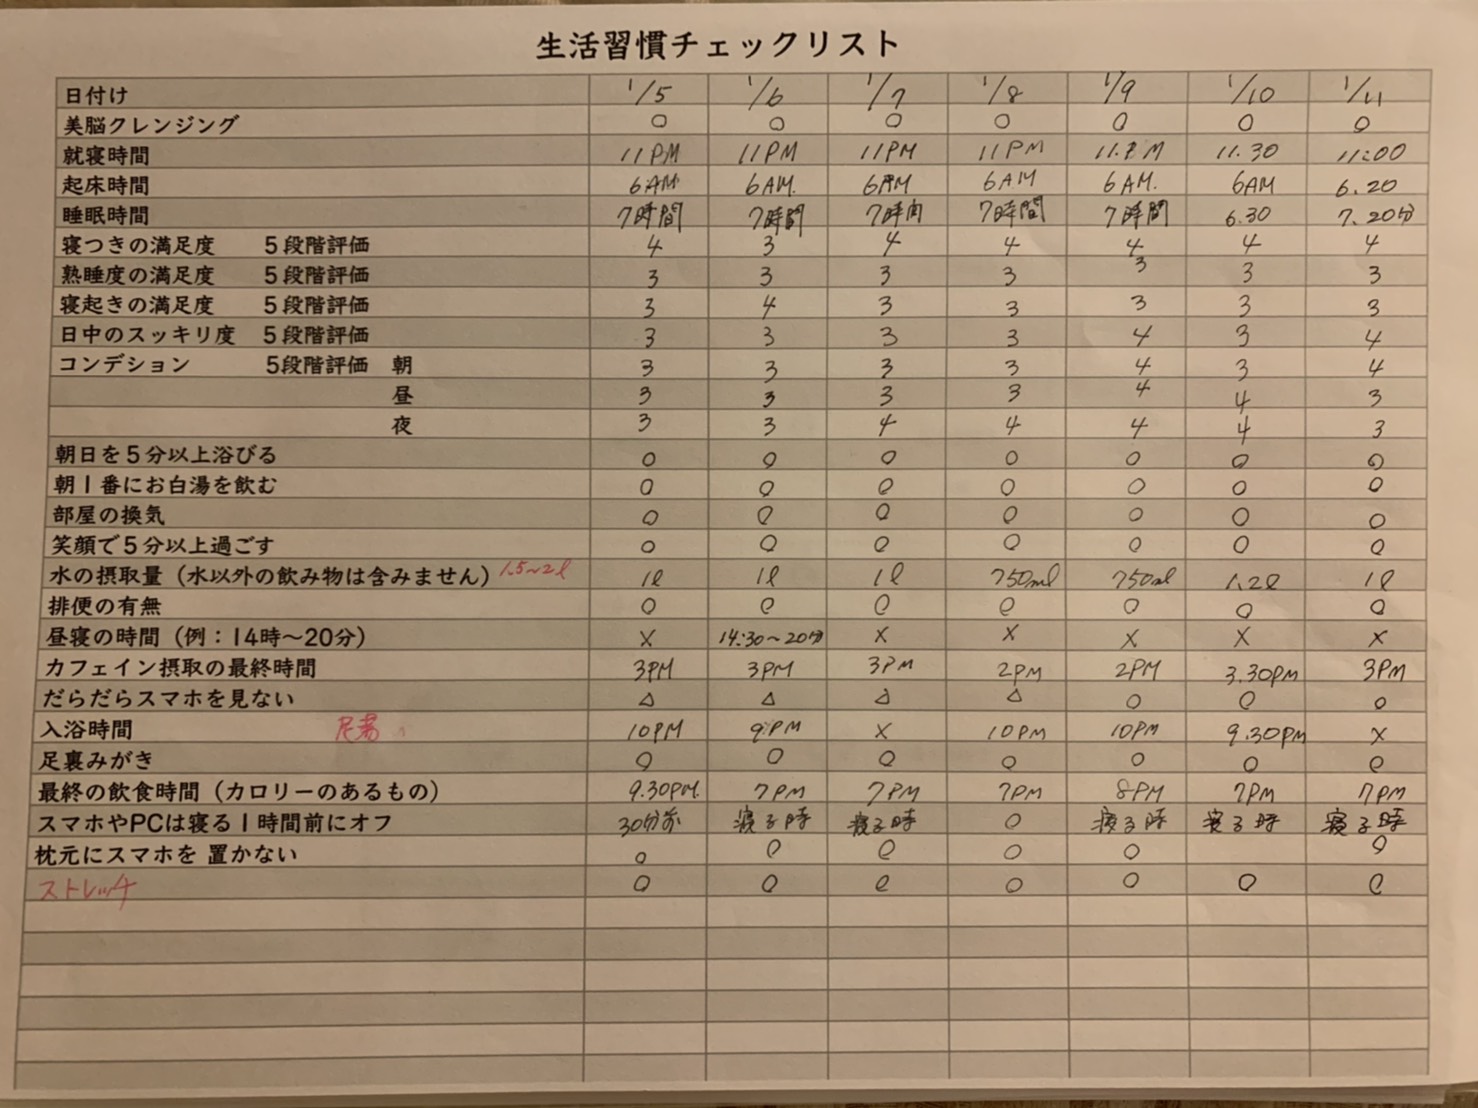 生活習慣チェックリスト
日付け 1/5 1/6 1/7 1/8 1/9 1/10 1/11
美脳クレンジング ○ ○ ○ ○ ○ ○ ○
就寝時間 11PM 11PM 11PM 11PM 11.PM 11.30 11:00
起床時間 6AM 6AM. 6AM 6AM 6AM. 6AM 6.20
睡眠時間 7時間 7時間 7時間 7時間 7時間 6.30 7.20分
寝つきの満足度 5段階評価 4 3 4 4 4 4 4
熟睡度の満足度 5段階評価 3 3 3 3 3 3 3
寝起きの満足度 5段階評価 3 4 3 3 3 3 3
日中のスッキリ度 5段階評価 3 3 3 3 4 3 4
コンデション 5段階評価 朝 3 3 3 3 4 3 4
昼 3 3 3 3 4 4 3
夜 3 3 4 4 4 4 3
朝日を5分以上浴びる ○ ○ ○ ○ ○ ○ ○
朝1番にお白湯を飲む ○ ○ ○ ○ ○ ○ ○
部屋の換気 ○ ○ ○ ○ ○ ○ ○
笑顔で5分以上過ごす ○ ○ ○ ○ ○ ○ ○
水の摂取量（水以外の飲み物は含みません） 1.5~2l 1l 1l 1l 750ml 750ml 1.2l 1l
排便の有無 ○ ○ ○ ○ ○ ○ ○
昼寝の時間（例：14時～20分） × 14:30~20分 × × × × ×
カフェイン摂取の最終時間 3PM 3PM 3PM 2PM 2PM 3.30PM 3PM
だらだらスマホを見ない △ △ △ △ ○ ○ ○
入浴時間 10PM 9PM × 10PM 10PM 9.30PM ×
足裏みがき ○ ○ ○ ○ ○ ○ ○
最終の飲食時間（カロリーのあるもの） 9.30PM. 7PM 7PM 7PM 8PM 7PM 7PM
スマホやPCは寝る1時間前にオフ 30分前 寝る時 寝る時 ○ 寝る時 寝る時 寝る時
枕元にスマホを 置かない ○ ○ ○ ○ ○ ○
ストレッチ ○ ○ ○ ○ ○ ○ ○